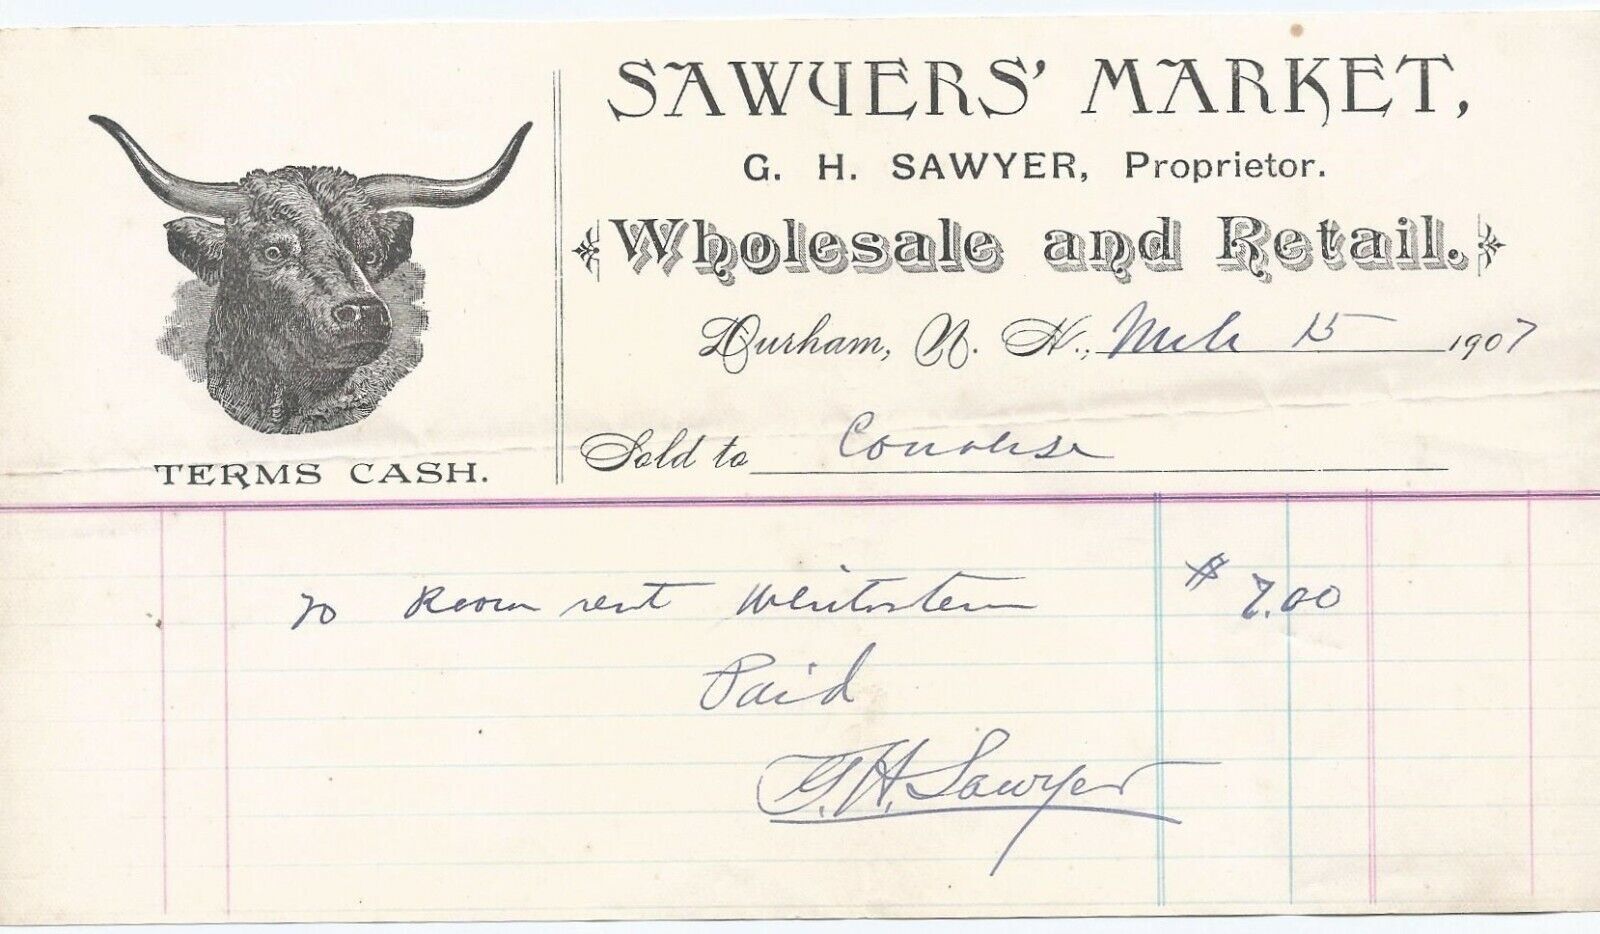 SAWYERS' MARKET,
G. H. SAWYER, Proprietor.
Wholesale and Retail.
Durham, N. H., Mch 15 1907
TERMS CASH.
Sold to
To Room rent $ 7.00
Paid
G. H. Sawyer